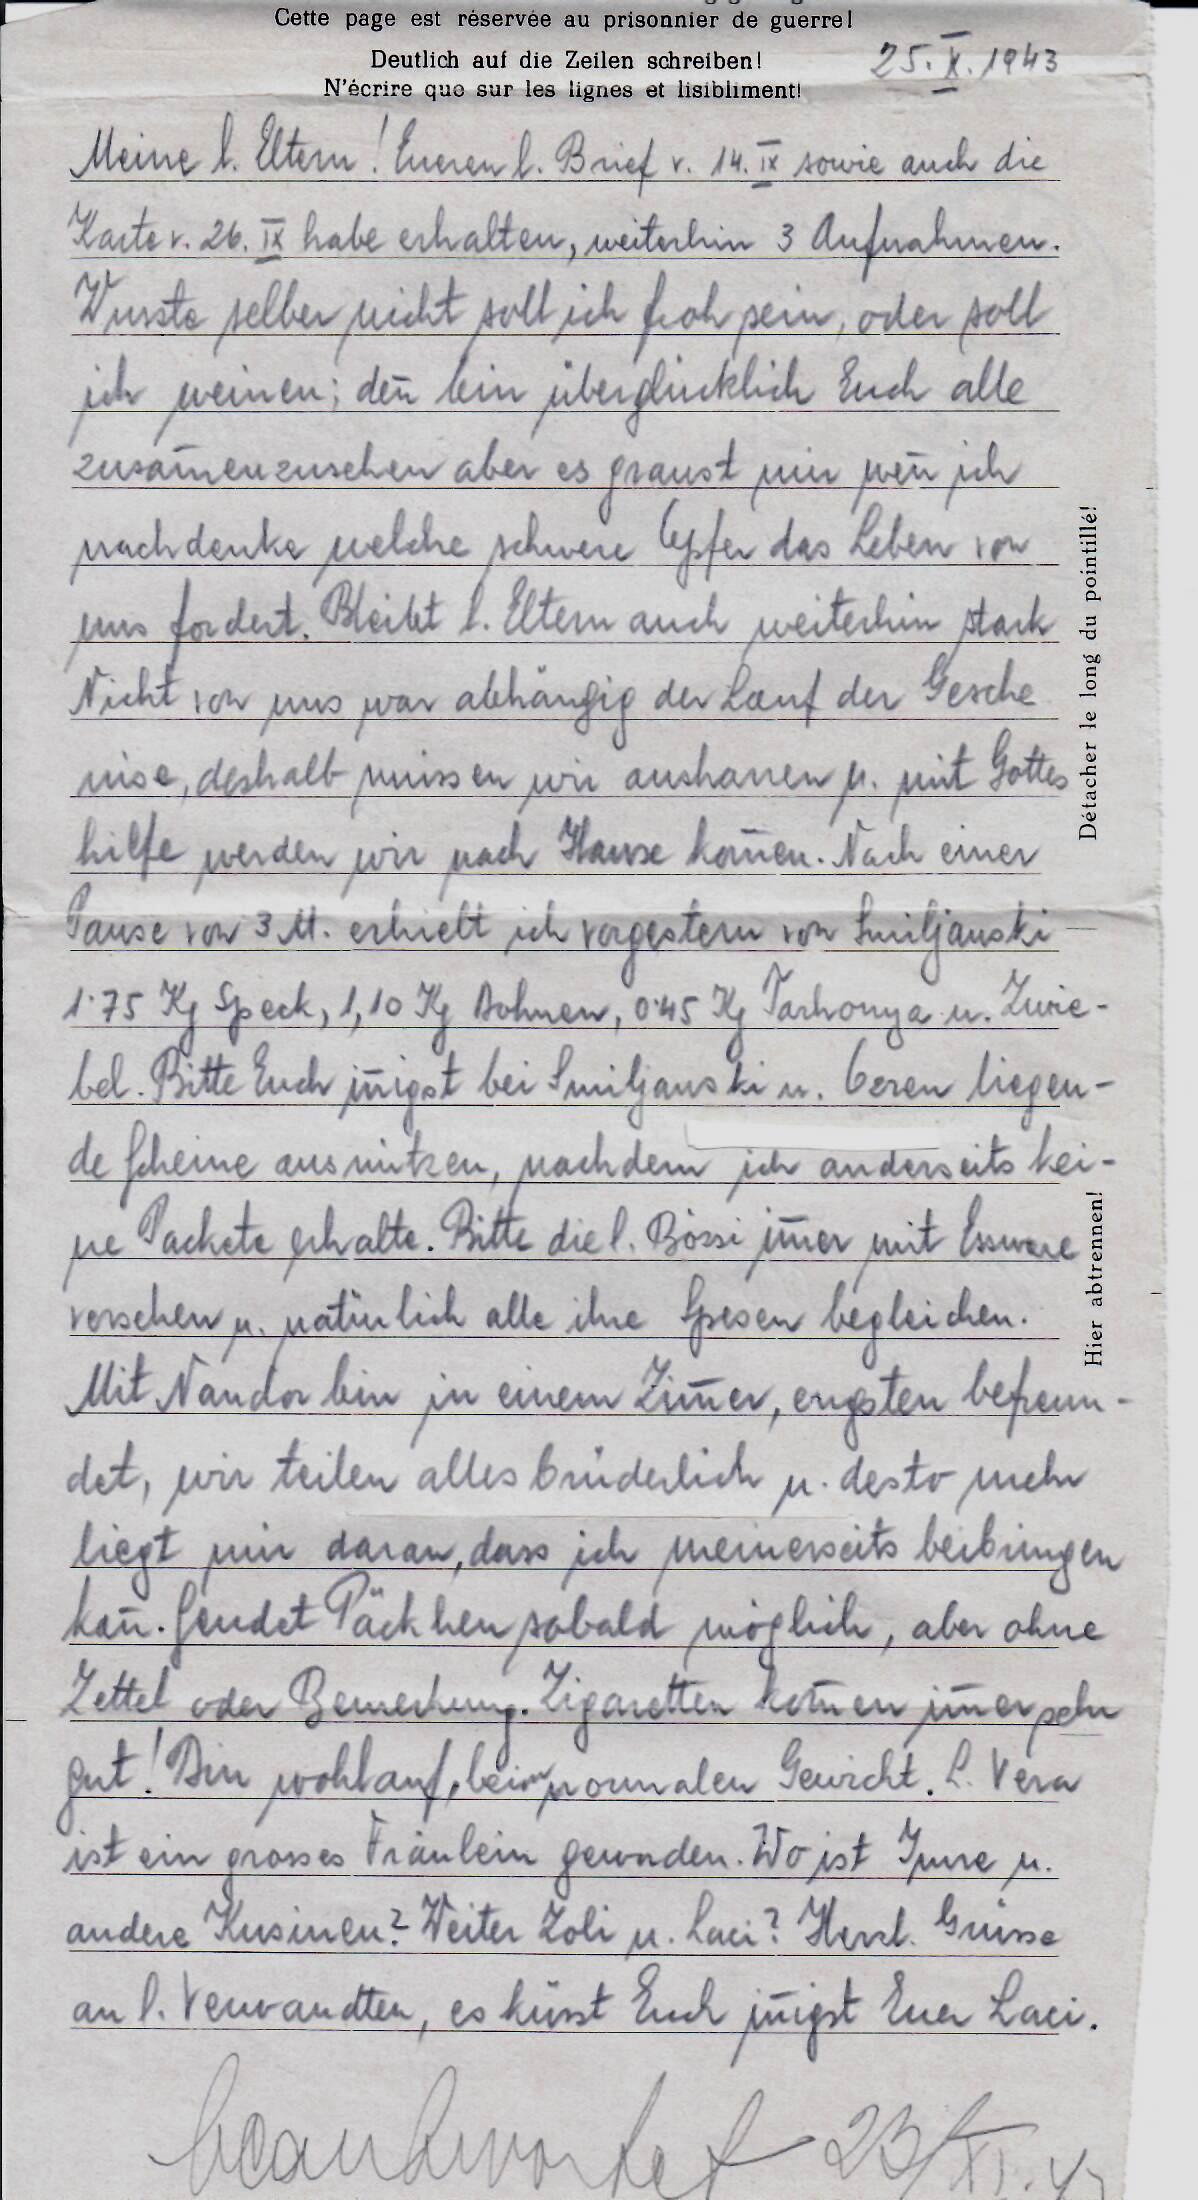 Cette page est réservée au prisonnier de guerre!
Deutlich auf die Zeilen schreiben!
N'écrire que sur les lignes et lisibliment!
25. X. 1943
Meine l. Eltern! Eueren l. Brief v. 14. IX sowie auch die
Karte v. 26. IX habe erhalten, weiterhin 3 Aufnahmen.
Wusste selber nicht soll ich froh sein, oder soll
ich weinen; den̄ bin überglücklich Euch alle
zusam̄enzusehen aber es graust mir wen̄ ich
nachdenke welche schwere Opfer das Leben von
uns fordert. Bleibt l. Eltern auch weiterhin stark
Nicht von uns war abhängig der Lauf der Gesche
nise, deshalb müssen wir ausharren u. mit Gottes
hilfe werden wir nach Hause kom̄en. Nach einer
Pause von 3 M. erhielt ich vorgestern von Smiljanski
1·75 Kg Speck, 1,10 Kg Bohnen, 0·45 Kg Tarhonya u. Zwie-
bel. Bitte Euch in̄igst bei Smiljanski u. Ceren liegen-
de Scheine ausnützen, nachdem ich anderseits kei-
ne Packete erhalte. Bitte die l. Bözsi im̄er mit Essware
versehen u. natürlich alle ihre Spesen begleichen.
Mit Nandor bin in einem Zim̄er, engsten befreun-
det, wir teilen alles brüderlich u. desto mehr
liegt mir daran, dass ich meinerseits beibringen
kan̄. Sendet Päckhen sobald möglich, aber ohne
Zettel oder Bemerkung. Zigaretten kom̄en im̄er sehr
gut! Bin wohlauf, beim normalen Gewicht. L. Vera
ist ein grosses Fräulein geworden. Wo ist Imre u.
andere Kusinen? Weiter Zoli u. Laci? Herzl. Grüsse
an l. Verwandten, es küsst Euch in̄igst Euer Laci.
beantwortet 23/XI. 43
Détacher le long du pointillé!
Hier abtrennen!